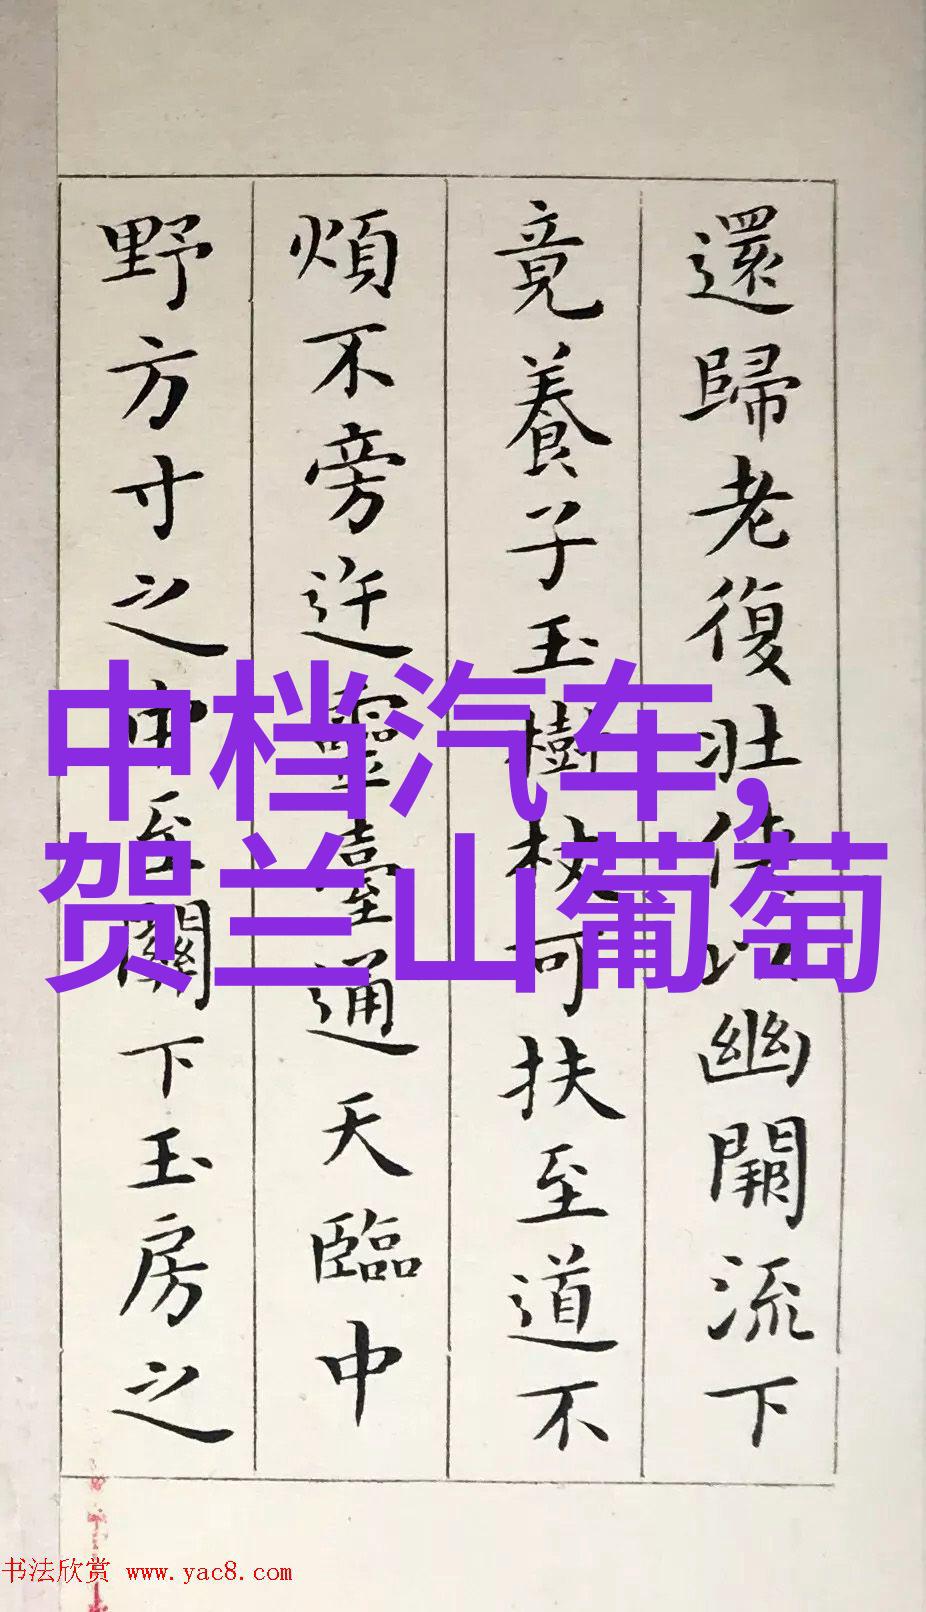 還歸老復壯俠以幽闕流下
竟養子玉樹枝可扶至道不
煩不旁迕靈臺通天臨中
野方寸之中至關下玉房之
中档汽车,
贺兰山葡萄
书法欣赏 www.yac8.com